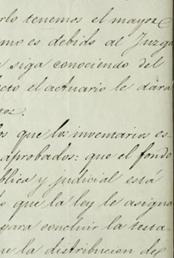 rlo tenemos el mayor
mo es debido al Juzga
siga conociendo del
cto el actuario le dara
os que los inventarios es
aprobados: que el fondo
blica y judicial está
o que la ley le asigna
para concluir la testa-
ue la distribucion de